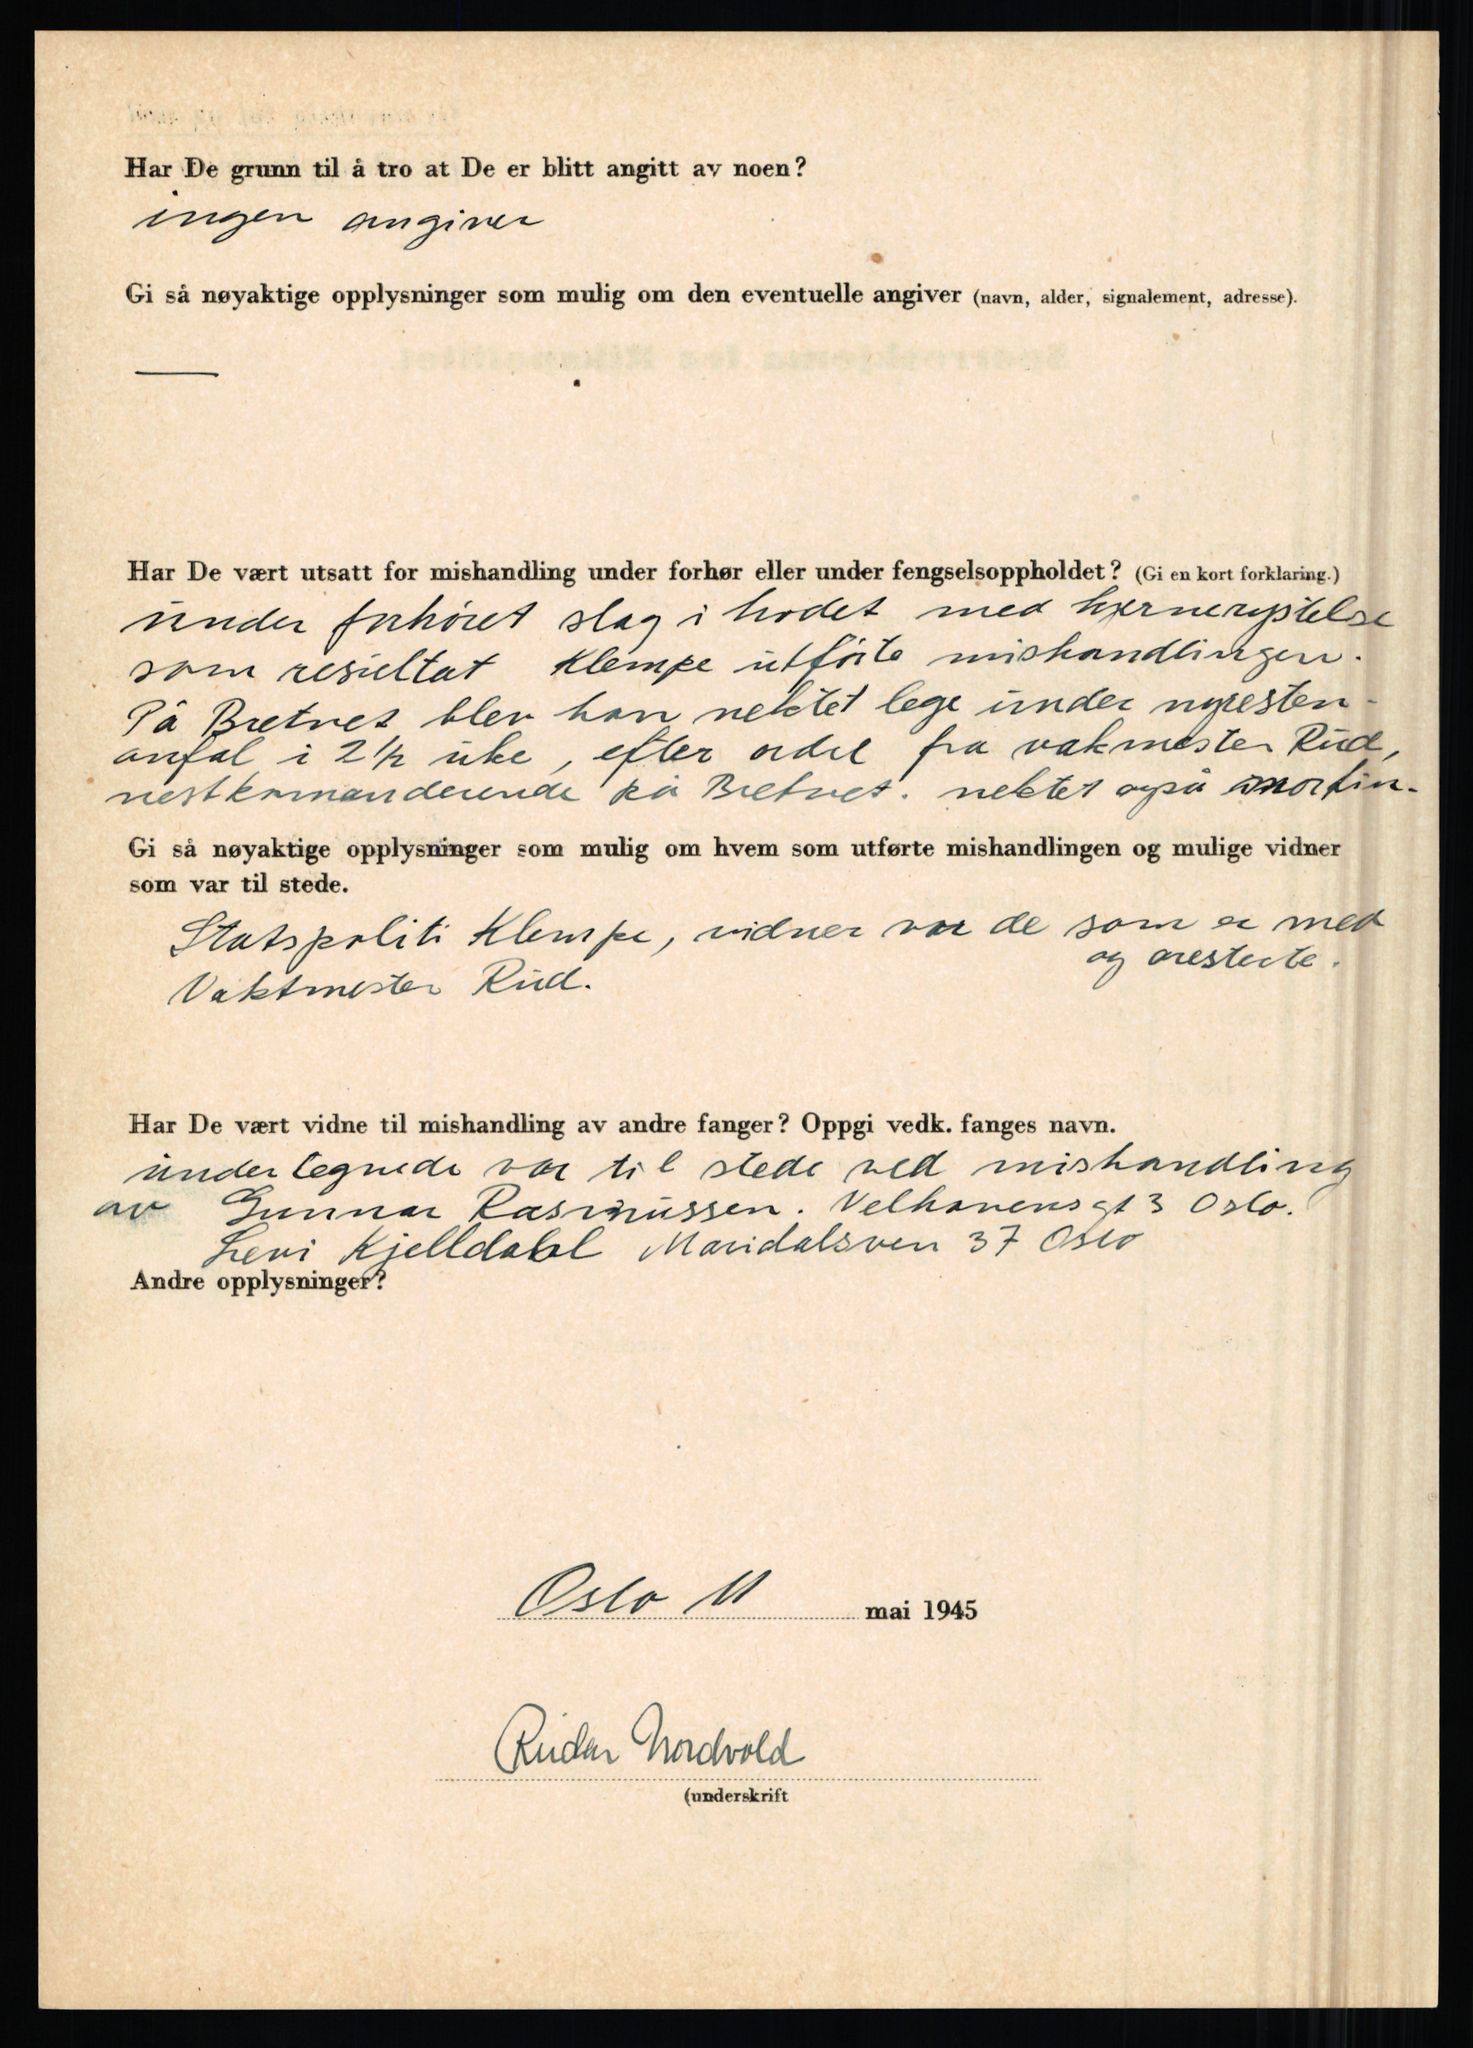 Har De grunn til å tro at De er blitt angitt av noen?
ingen angiver
Gi så nøyaktige opplysninger som mulig om den eventuelle angiver (navn, alder, signalement, adresse).
Har De vært utsatt for mishandling under forhør eller under fengselsoppholdet? (Gi en kort forklaring.)
under forhöret slag i hodet med hjernerystelse
som resultat Klempe utförte mishandlingen.
På Bretvet blev han nektet lege under nyresten-
anfal i 2 1/2 uke, efter ordre fra vakmester Rud,
nestkommanderende på Bretvet. nektet også morfin.
Gi så nøyaktige opplysninger som mulig om hvem som utførte mishandlingen og mulige vidner
som var til stede.
Statspoliti Klempe, vidner var de som er med
og aresterte.
Vaktmester Rud.
Har De vært vidne til mishandling av andre fanger? Oppgi vedk. fanges navn.
undertegnede var til stede ved mishandling
av Gunnar Rasmussen. Velhavensgt 3 Oslo.
Levi Kjelldahl Maridalsven 37 Oslo
Andre opplysninger?
Oslo 11 mai 1945
Reidar Nordvold
(underskrift